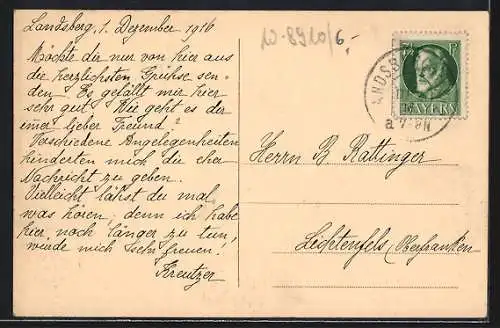 Landsberg, 1. Dezember 1916
Möchte dir nur von hier aus
die herzlichsten Grüße sen-
den Es gefällt mir hier
sehr gut. Wie geht es dir
immer lieber Freund?
Verschiedene Angelegenheiten
hinderten mich die eher
Nachricht zu geben.
Vielleicht läßst du mal
was hören, denn ich habe
hier noch länger zu tun,
würde mich sehr freuen!
Kreutzer
W-8920/6,-
7½ P F
BAYERN
LANDSB
Herrn B Rattinger
Lichtenfels (Oberfranken